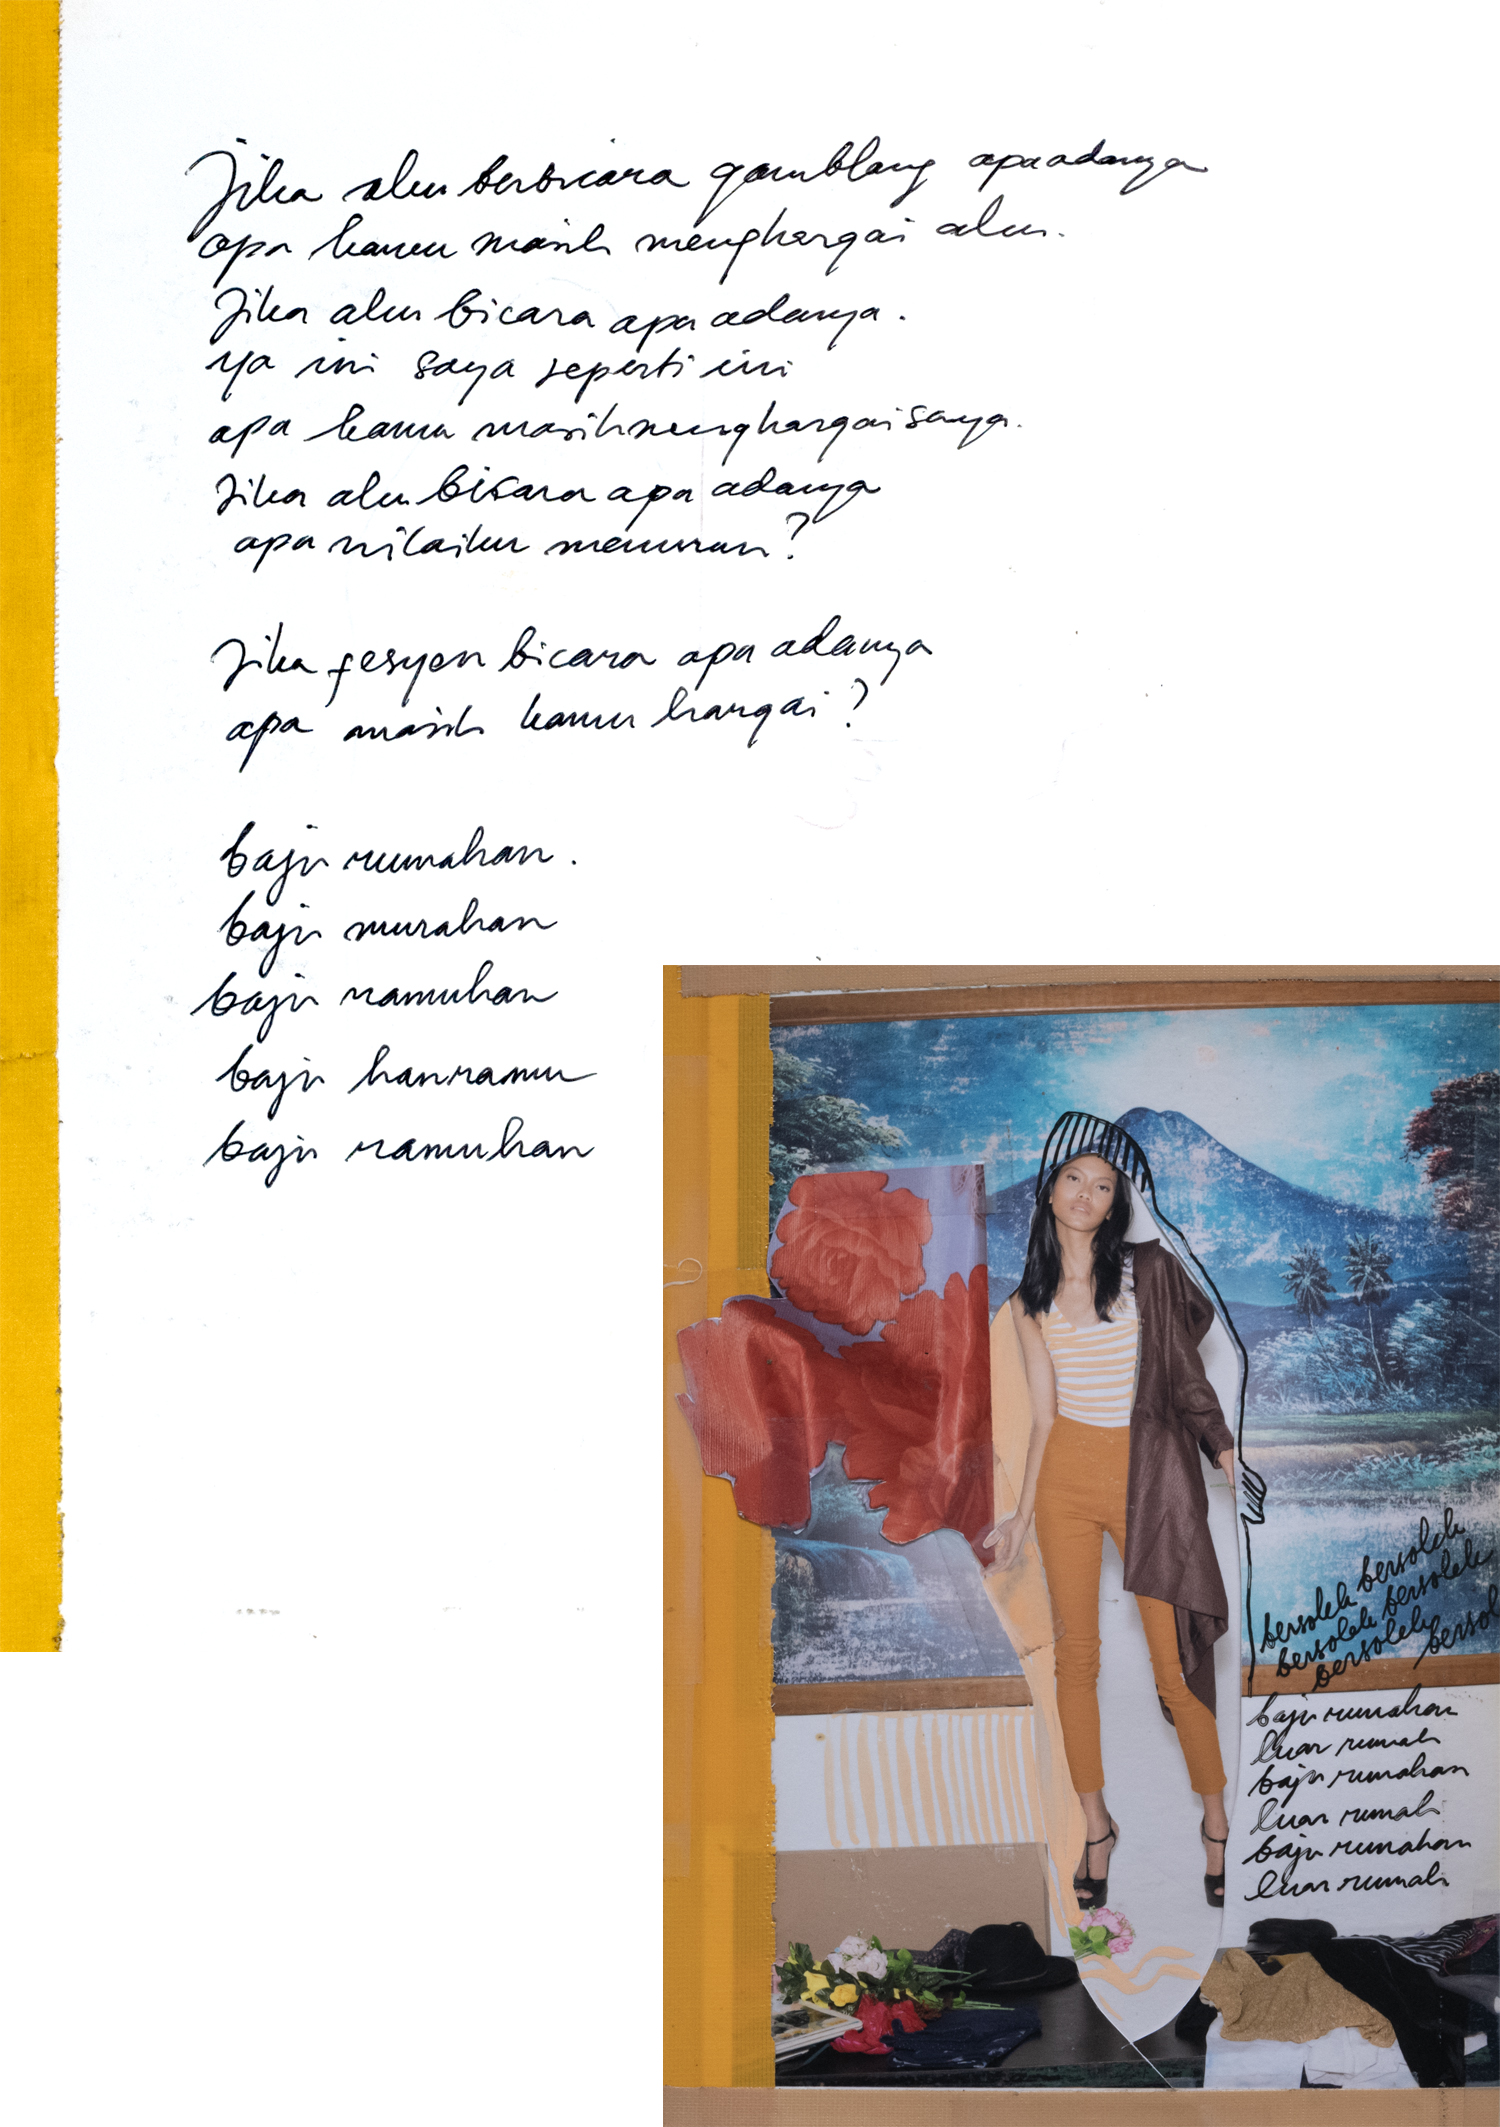 Jika aku berbicara gamblang apa adanya
apa kamu masih menghargai aku.
Jika aku bicara apa adanya.
ya ini saya seperti ini
apa kamu masih menghargai saya.
Jika aku bicara apa adanya
apa nilaiku menurun?
Jika fesyen bicara apa adanya
apa masih kamu hargai?
baju rumahan.
baju murahan
baju ramuhan
baju hanramu
baju ramuhan
bersolek bersolek
bersolek bersolek
bersolek bersol
baju rumahan
luar rumah
baju rumahan
luar rumah
baju rumahan
luar rumah